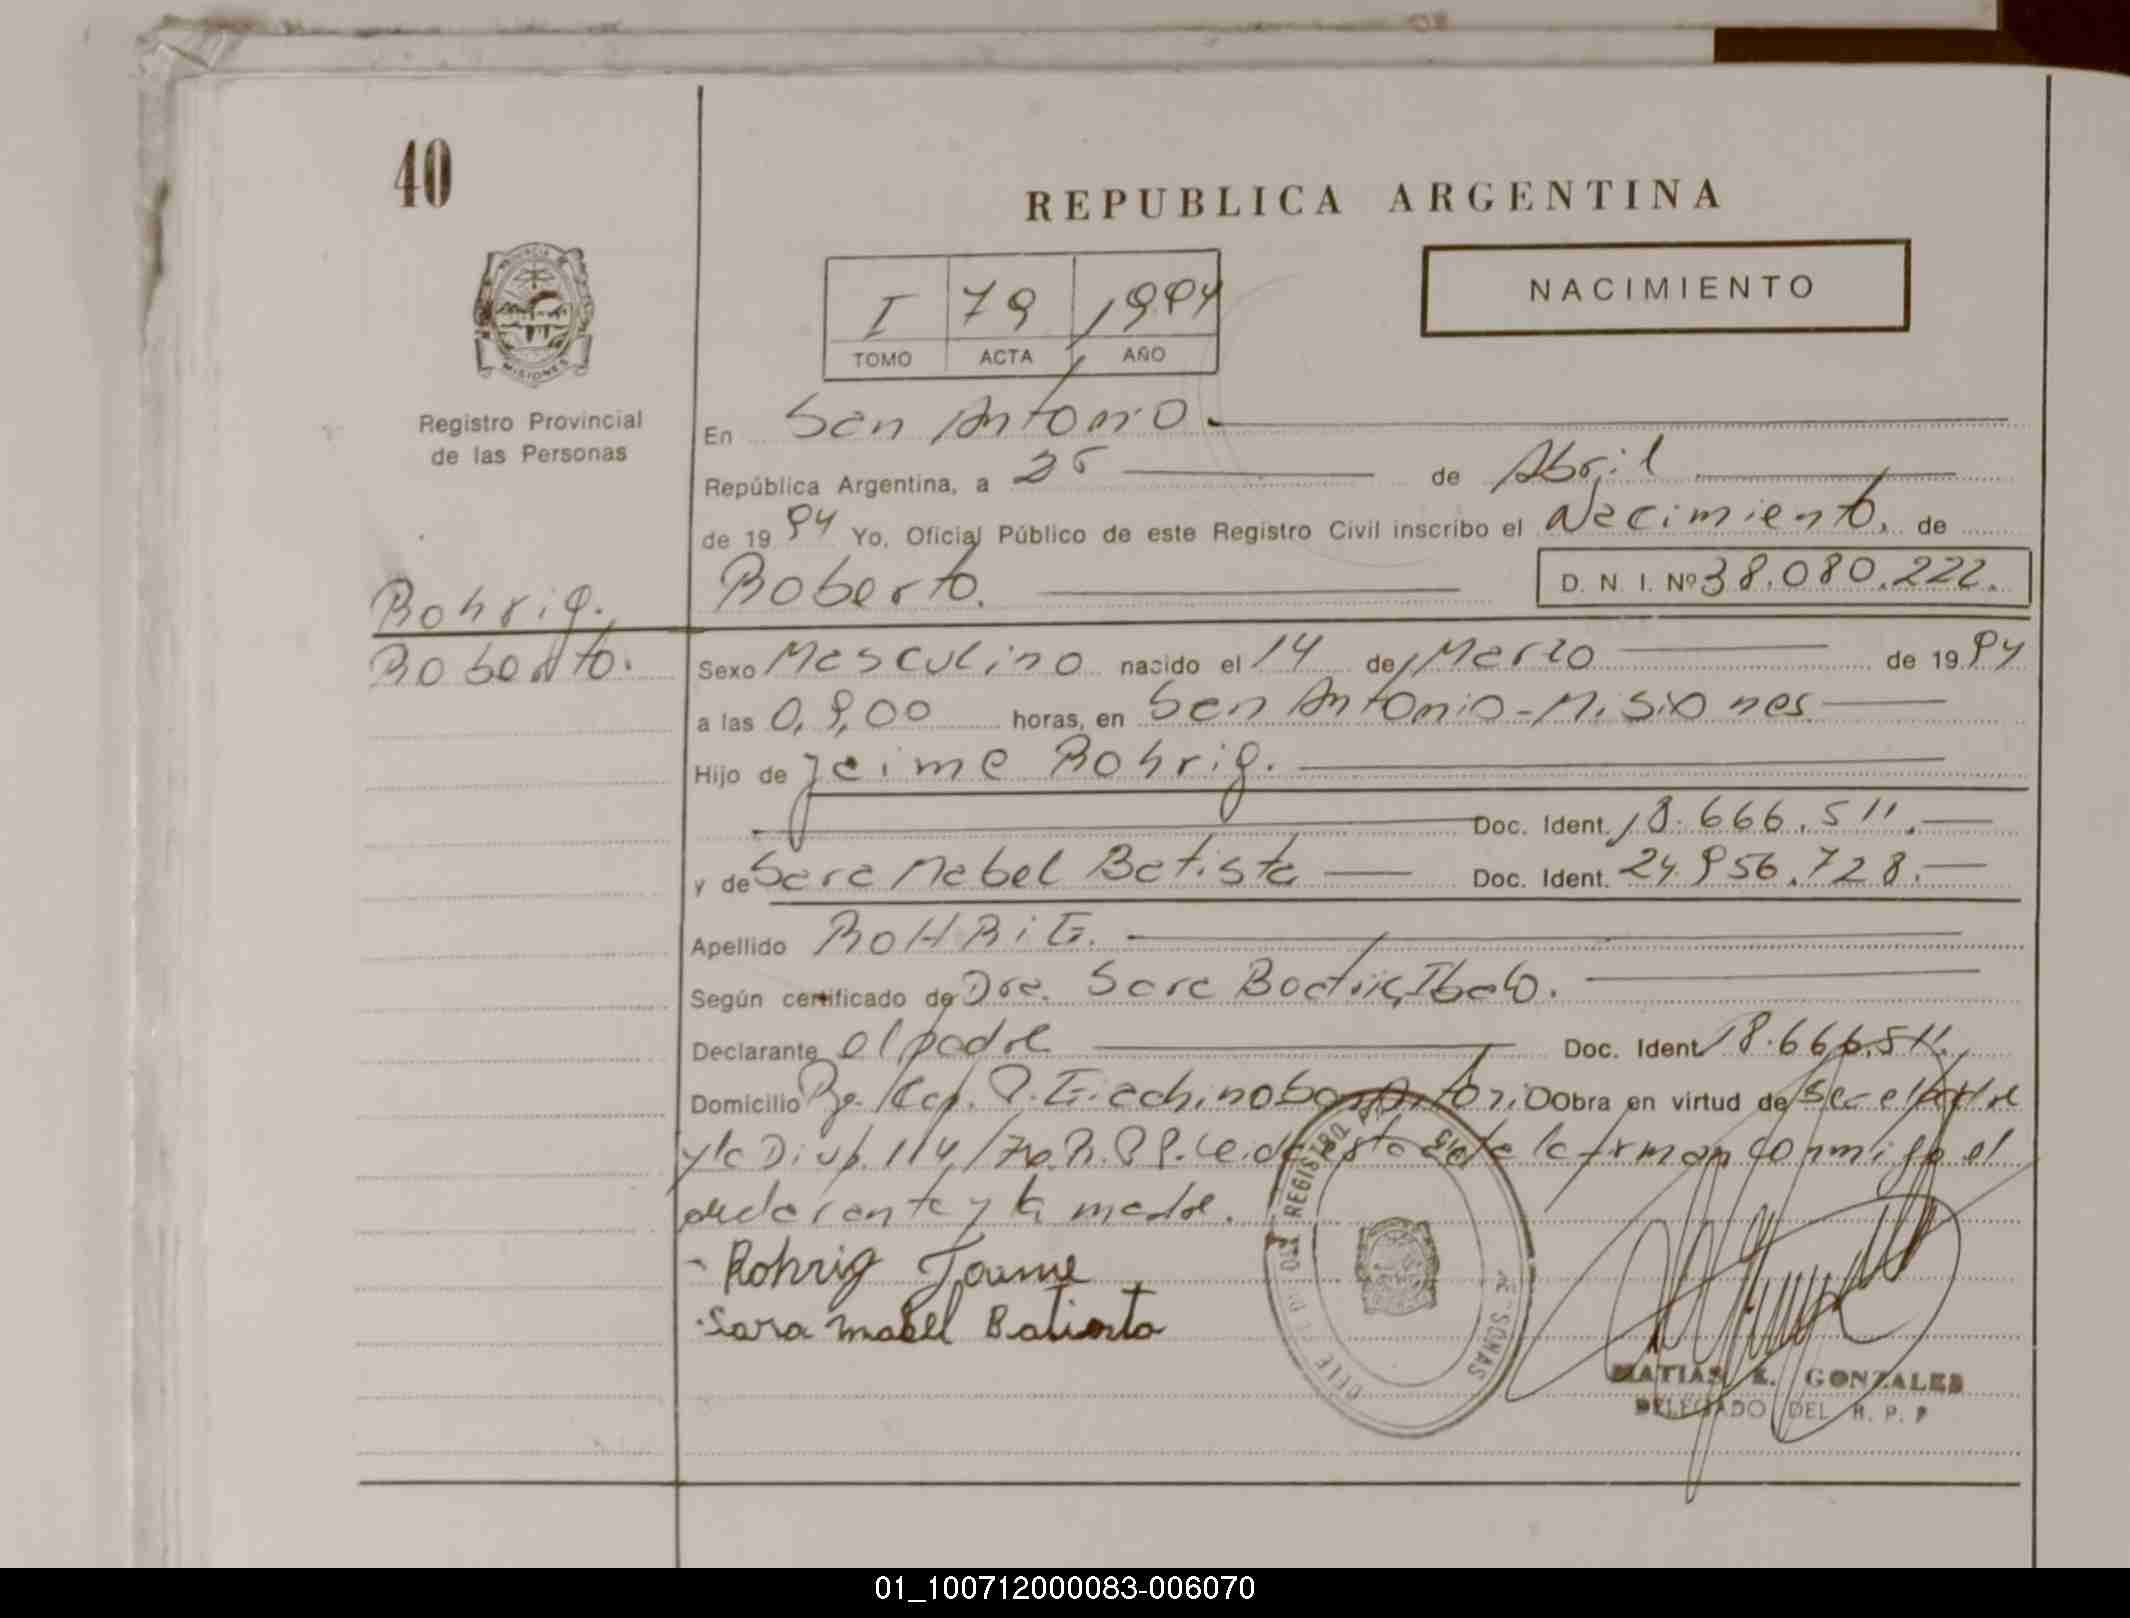 40
REPUBLICA ARGENTINA
NACIMIENTO
I 79 1994
TOMO ACTA AÑO
PROVINCIA DE
MISIONES
Registro Provincial
de las Personas
En San Antonio
República Argentina, a 25 de Abril
de 1994 Yo, Oficial Público de este Registro Civil inscribo el Nacimiento, de
Roberto. D. N. I. Nº 38.080.222.
Rohrig.
Roberto.
Sexo Masculino nacido el 14 de Marzo de 1994
a las 0,9,00 horas, en San Antonio-Misiones
Hijo de Jaime Rohrig.
Doc. Ident. 18.666.511.
y de Sara Mabel Batista Doc. Ident. 24.956.728.
Apellido ROHRiG.
Según certificado de Dra. Sara
Declarante el padre Doc. Ident 18.666.511.
Domicilio Obra en virtud de ser el padre
y la Disp. 114/ R.P.P. Leida esta acta la firman conmigo el
declarante y la madre.
Rohrig Jaime
Sara Mabel Batista
REGISTRO
MATIAS E. GONZALES
DELEGADO DEL R. P. P
01_100712000083-006070